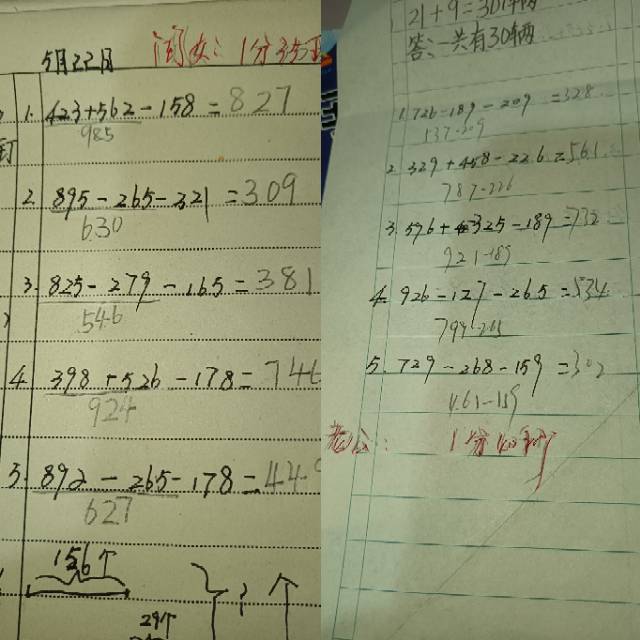 5月22日
1分35
1. 423+562-158=827
985
2. 895-265-321=309
630
3. 825-279-165=381
546
4. 398+526-178=746
924
5. 892-265-178=44
627
156个
29个
21+9=30(辆
答:一共有30辆
1. 726-189-209=328
537-209
2. 329+458-226=561
787-226
3. 596+325-189=732
921-189
4. 926-127-265=534
799-265
5. 729-268-159=302
461-159
老公: 1分40秒